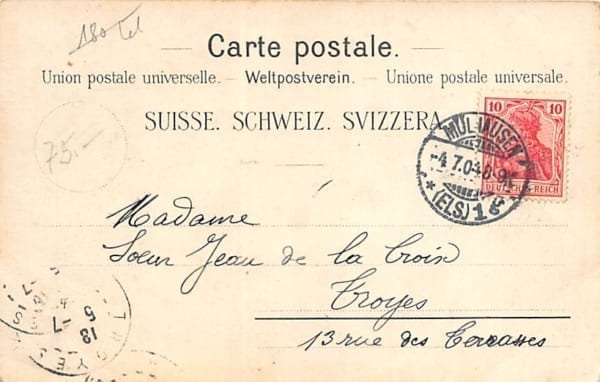 180
Carte postale.
Union postale universelle. – Weltpostverein. – Unione postale universale.
SUISSE. SCHWEIZ. SVIZZERA.
75.-
10 10
DEUTSCHES REICH
MÜLHAUSEN
-4.7.04.8-9
* (ELS) 1
Madame
Soeur Jean de la Croix
Troyes
13 rue des Terrasses
TROYES
13
5 -7